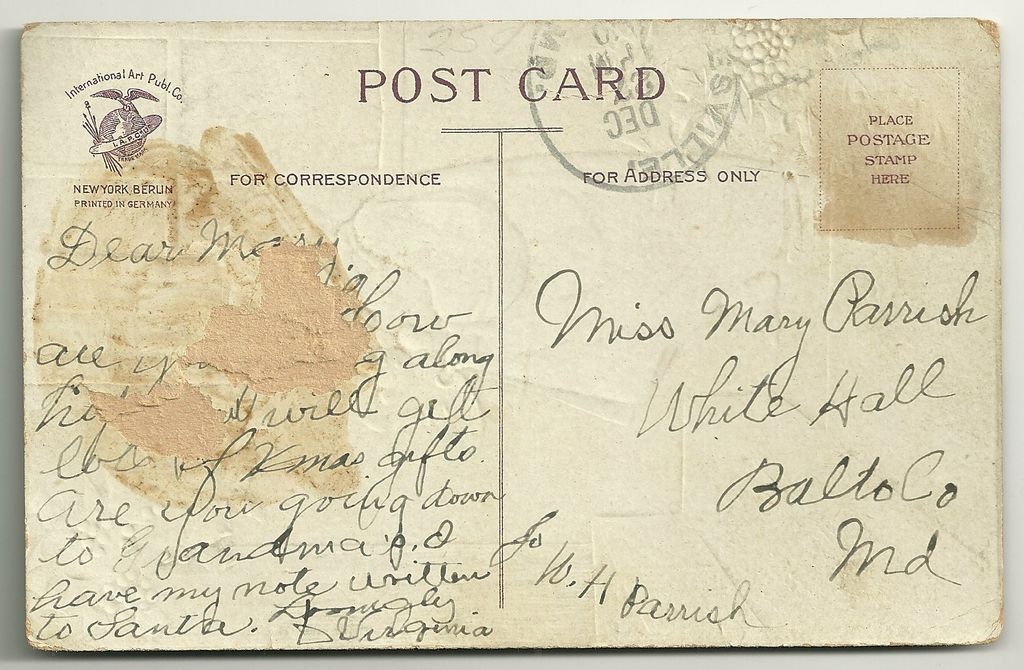 International Art Publ. Co.
I.A.P.CO.
TRADE MARK
NEW YORK, BERLIN
PRINTED IN GERMANY
POST CARD
FOR CORRESPONDENCE
FOR ADDRESS ONLY
PLACE
POSTAGE
STAMP
HERE
ESVILLE
MD.
DEC
Dear Mary
How
are you g along
will get
lots of Xmas gifts.
Are you going down
to Grandma's. I
have my note written
to Santa.
Virginia
Miss Mary Parrish
White Hall
Balto Co
Md
To
W. H Parrish